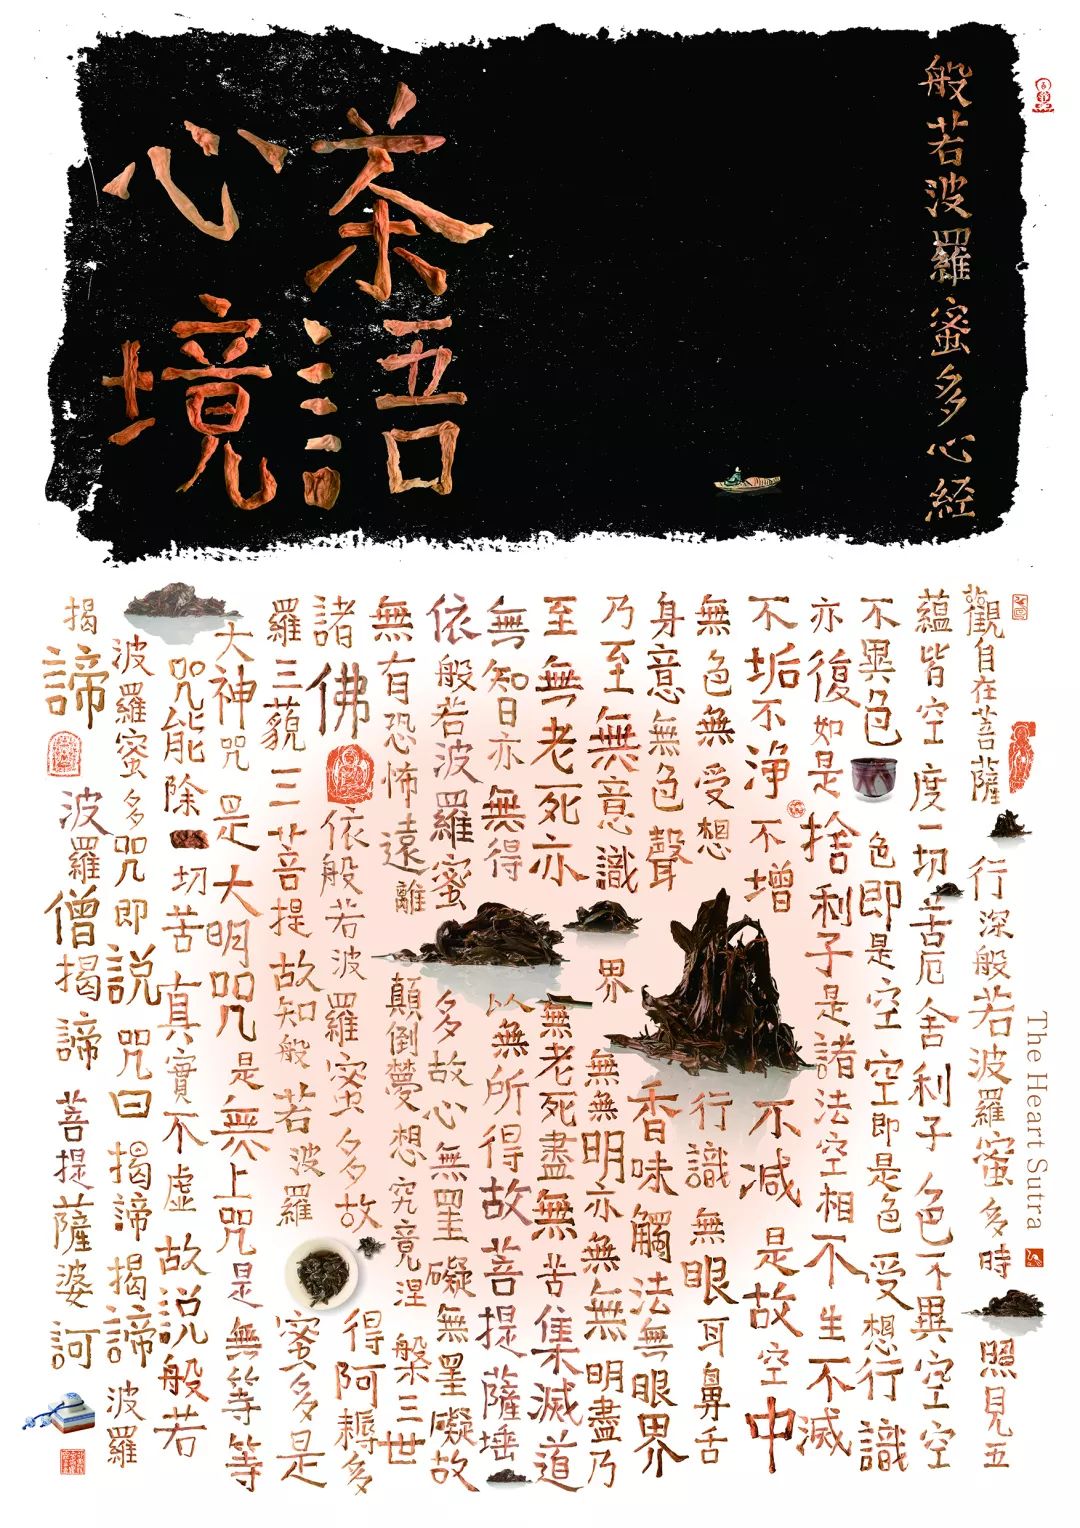 般若波羅蜜多心経
茶語
心境
觀自在菩薩行深般若波羅蜜多時照見五
蘊皆空度一切苦厄舍利子色不異空空
不異色色即是空空即是色受想行識
亦復如是捨利子是諸法空相不生不滅
不垢不淨不增不減是故空中
無色無受想行識無眼耳鼻舌
身意無色聲香味觸法無眼界
乃至無意識界無無明亦無無明盡乃
至無老死亦無老死盡無苦集滅道
無知日亦無得以無所得故菩提薩埵
依般若波羅蜜多故心無罣礙無罣礙故
無有恐怖遠離顛倒夢想究竟涅槃三世
諸佛依般若波羅蜜多故得阿耨多
羅三藐三菩提故知般若波羅蜜多是
大神咒是大明咒是無上咒是無等等
咒能除一切苦真實不虛故説般若
波羅蜜多咒即説咒曰揭諦揭諦波羅
揭諦波羅僧揭諦菩提薩婆訶
The Heart Sutra